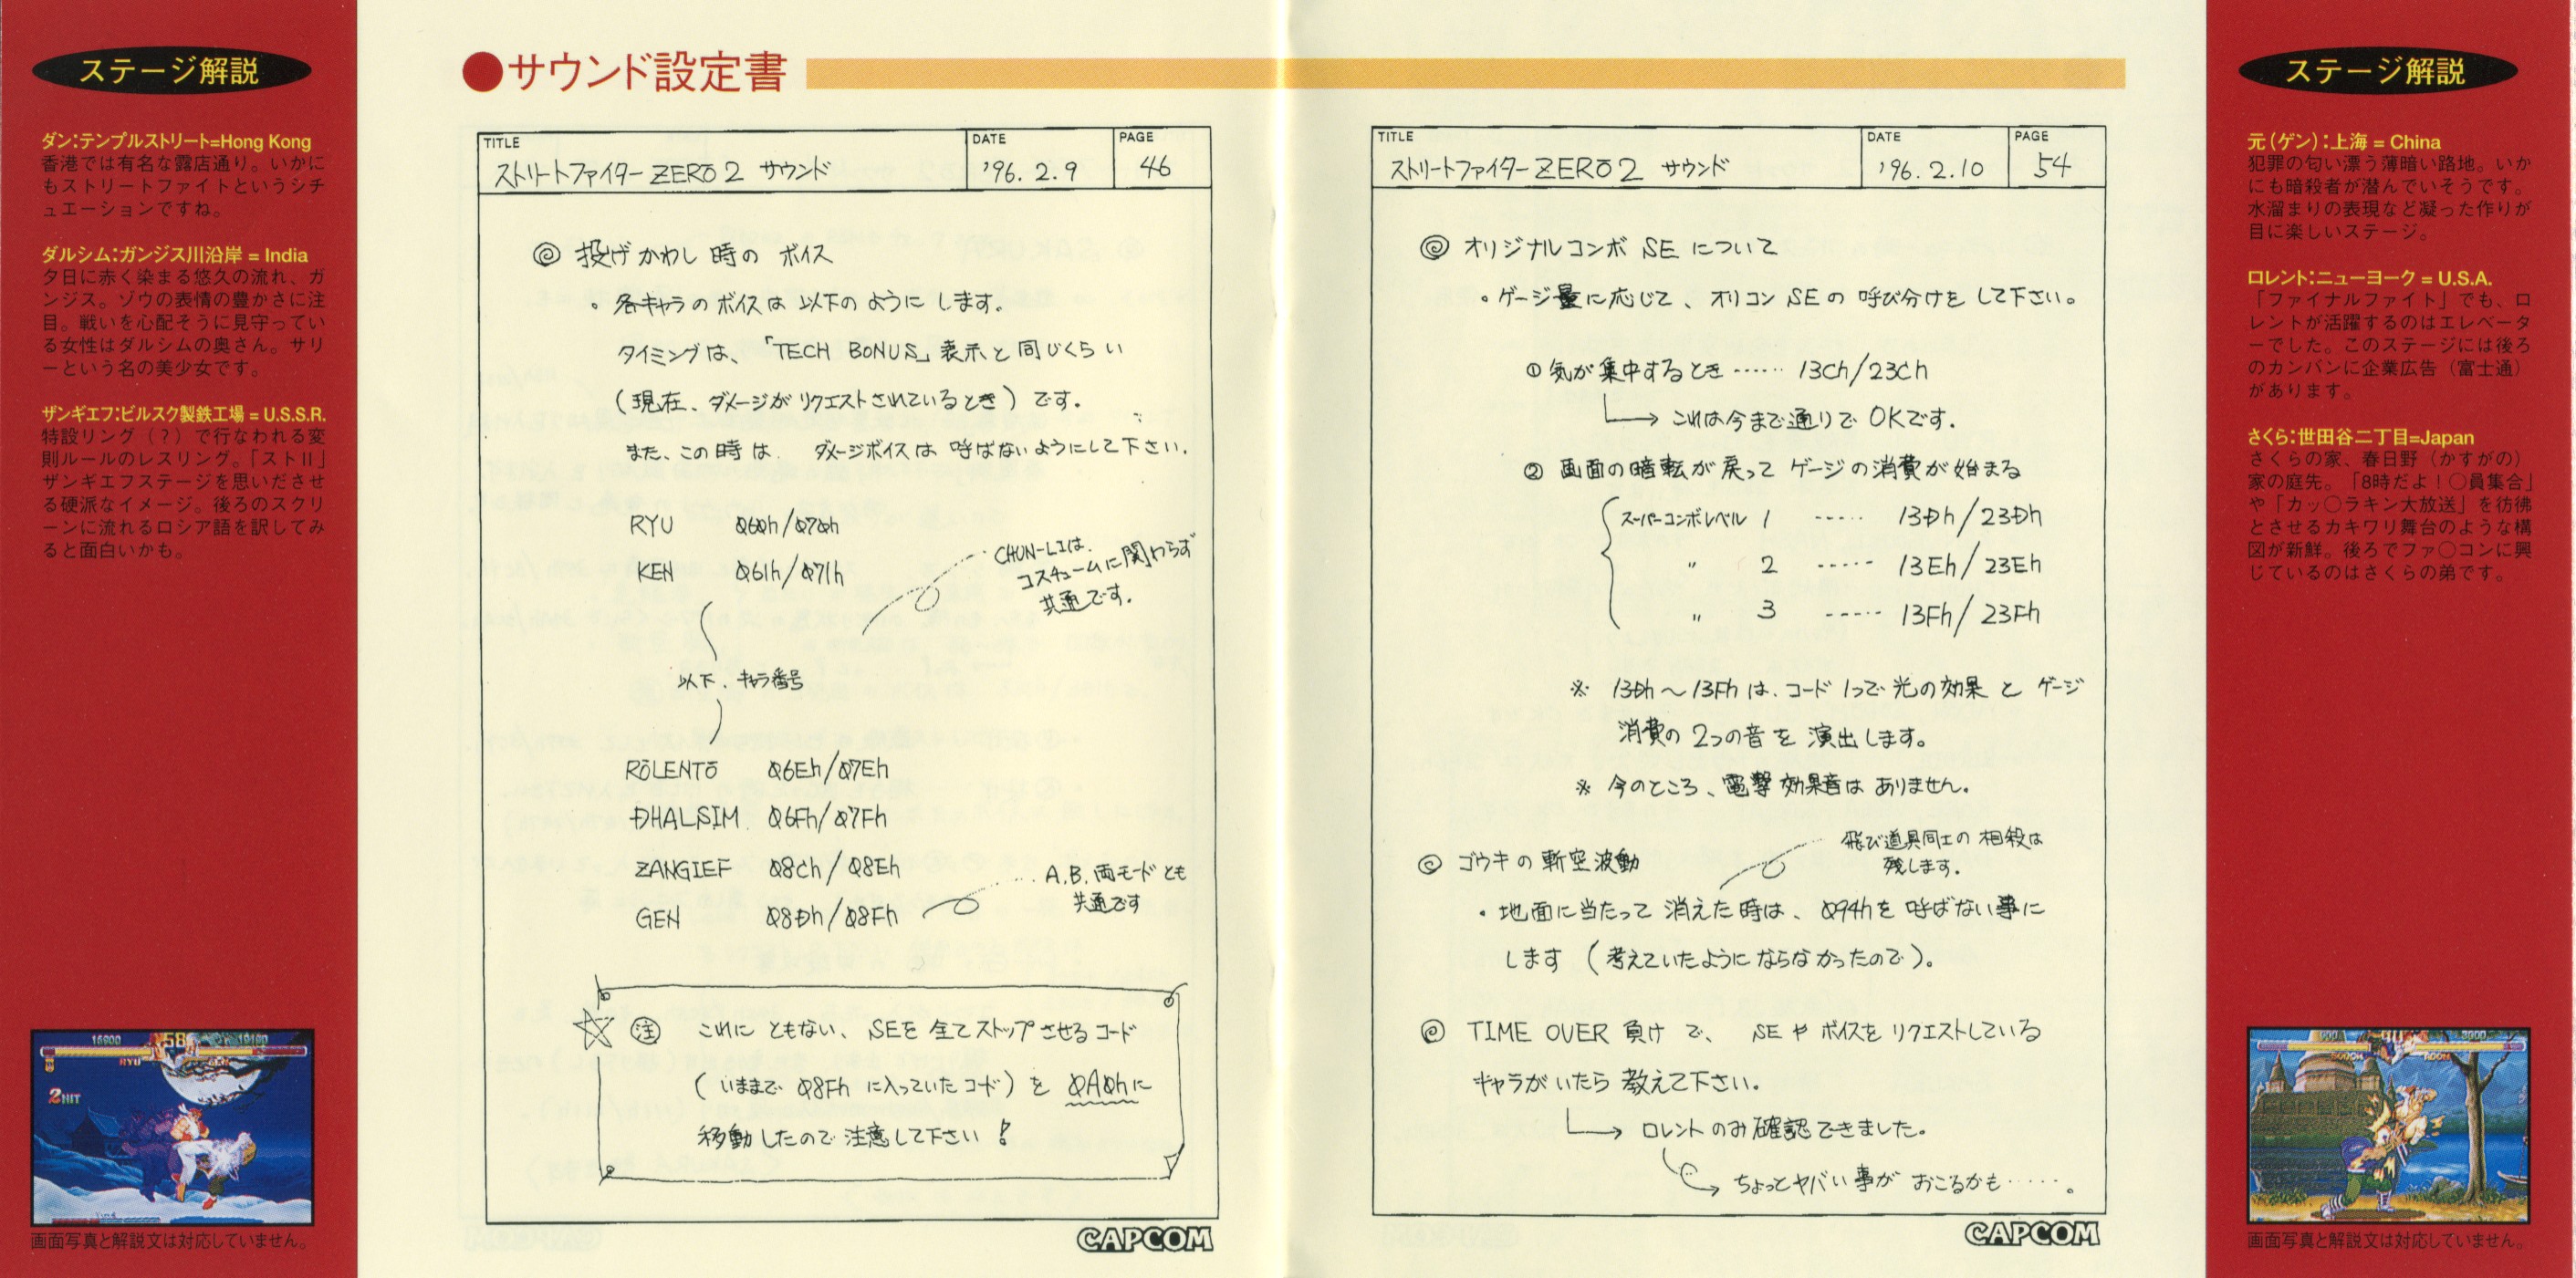 ステージ解説
ダン:テンプルストリート=Hong Kong
香港では有名な露店通り。いかに
もストリートファイトというシチ
ュエーションですね。
ダルシム:ガンジス川沿岸 = India
夕日に赤く染まる悠久の流れ、ガ
ンジス。ゾウの表情の豊かさに注
目。戦いを心配そうに見守ってい
る女性はダルシムの奥さん。サリ
ーという名の美少女です。
ザンギエフ:ビルスク製鉄工場 = U.S.S.R.
特設リング(?)で行なわれる変
則ルールのレスリング。「ストII」
ザンギエフステージを思いださせ
る硬派なイメージ。後ろのスクリ
ーンに流れるロシア語を訳してみ
ると面白いかも。
16900 58 19190
RYU
2HIT
画面写真と解説文は対応していません。
●サウンド設定書
TITLE DATE PAGE
ストリートファイターZERO2 サウンド '96.2.9 46
◎ 投げかわし時の ボイス
・各キャラのボイスは以下のようにします。
タイミングは、「TECH BONUS」表示と同じくらい
(現在、ダメージがリクエストされているとき)です。
また、この時は ダメージボイスは呼ばないようにして下さい。
RYU 060h/070h
KEN 061h/071h
CHUN-LIは、
コスチュームに関わらず
共通です。
以下、キャラ番号
ROLENTO 06Eh/07Eh
DHALSIM 06Fh/07Fh
ZANGIEF 08Ch/08Eh
GEN 08Dh/08Fh
A,B,両モードとも
共通です
☆ 注 これにともない、SEを全てストップさせるコード
(いままで 08Fh に入っていたコード)を 0A0hに
移動したので注意して下さい!
CAPCOM
TITLE DATE PAGE
ストリートファイターZERO2 サウンド '96.2.10 54
◎ オリジナルコンボ SE について
・ゲージ量に応じて、オリコンSEの呼び分けをして下さい。
① 気が集中するとき …… 13Ch/23Ch
→ これは今まで通りでOKです。
② 画面の暗転が戻って ゲージの消費が始まる
スーパーコンボレベル 1 ····· 13Dh/23Dh
〃 2 ····· 13Eh/23Eh
〃 3 ····· 13Fh/23Fh
※ 13Dh~13Fhは、コード1つで光の効果とゲージ
消費の2つの音を演出します。
※ 今のところ、電撃効果音はありません。
◎ ゴウキの斬空波動
飛び道具同士の相殺は
残します。
・地面に当たって消えた時は、094hを呼ばない事に
します(考えていたようにならなかったので)。
◎ TIME OVER負けで、SEやボイスをリクエストしている
キャラがいたら教えて下さい。
→ ロレントのみ確認できました。
→ ちょっとヤバい事がおこるかも·····。
CAPCOM
ステージ解説
元(ゲン):上海 = China
犯罪の匂い漂う薄暗い路地。いか
にも暗殺者が潜んでいそうです。
水溜まりの表現など凝った作りが
目に楽しいステージ。
ロレント:ニューヨーク = U.S.A.
「ファイナルファイト」でも、ロ
レントが活躍するのはエレベータ
ーでした。このステージには後ろ
のカンバンに企業広告(富士通)
があります。
さくら:世田谷二丁目=Japan
さくらの家、春日野(かすがの)
家の庭先。「8時だよ!○員集合」
や「カッ○ラキン大放送」を彷彿
とさせるカキワリ舞台のような構
図が新鮮。後ろでファ○コンに興
じているのはさくらの弟です。
画面写真と解説文は対応していません。